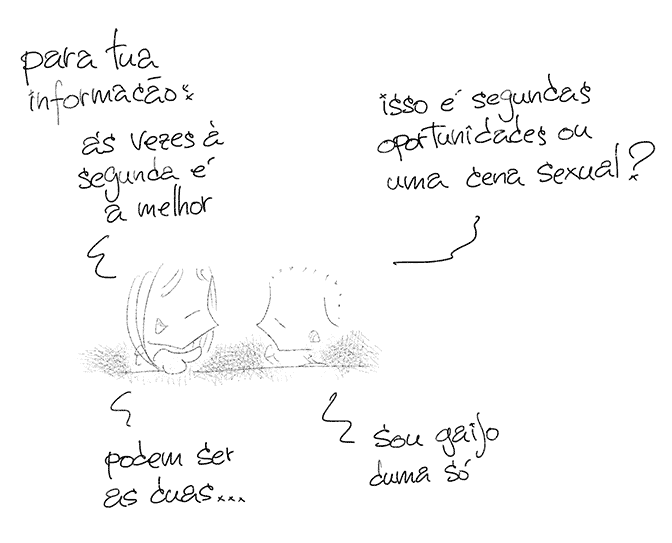 para tua
informação:
ás vezes à
segunda é
a melhor
isso é segundas
oportunidades ou
uma cena sexual?
podem ser
as duas...
sou gaijo
duma só